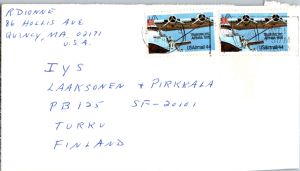 R DIONNE
86 HOLLIS AVE
QUINCY, MA. 02171
U.S.A.
IYS
LAAKSONEN & PIRKKALA
PB 125 SF-20101
TURKU
FINLAND
USAirmail 44
USAirmail 44